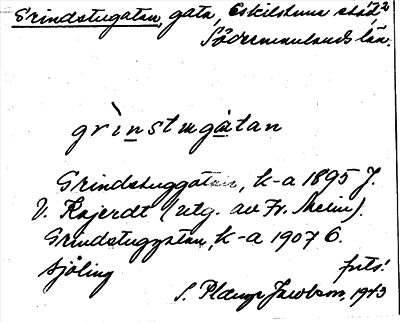 Grindstugatan, gata, Eskilstuna stad,
Södermanlands län.
grinstugàtan
Grindstuggatan, k-a 1895 J.
V. Kajerdt (utg. av Fr.
Grindstugatan, k-a 1907 G.
Sjöling forts!
S. Jacobson, 1943